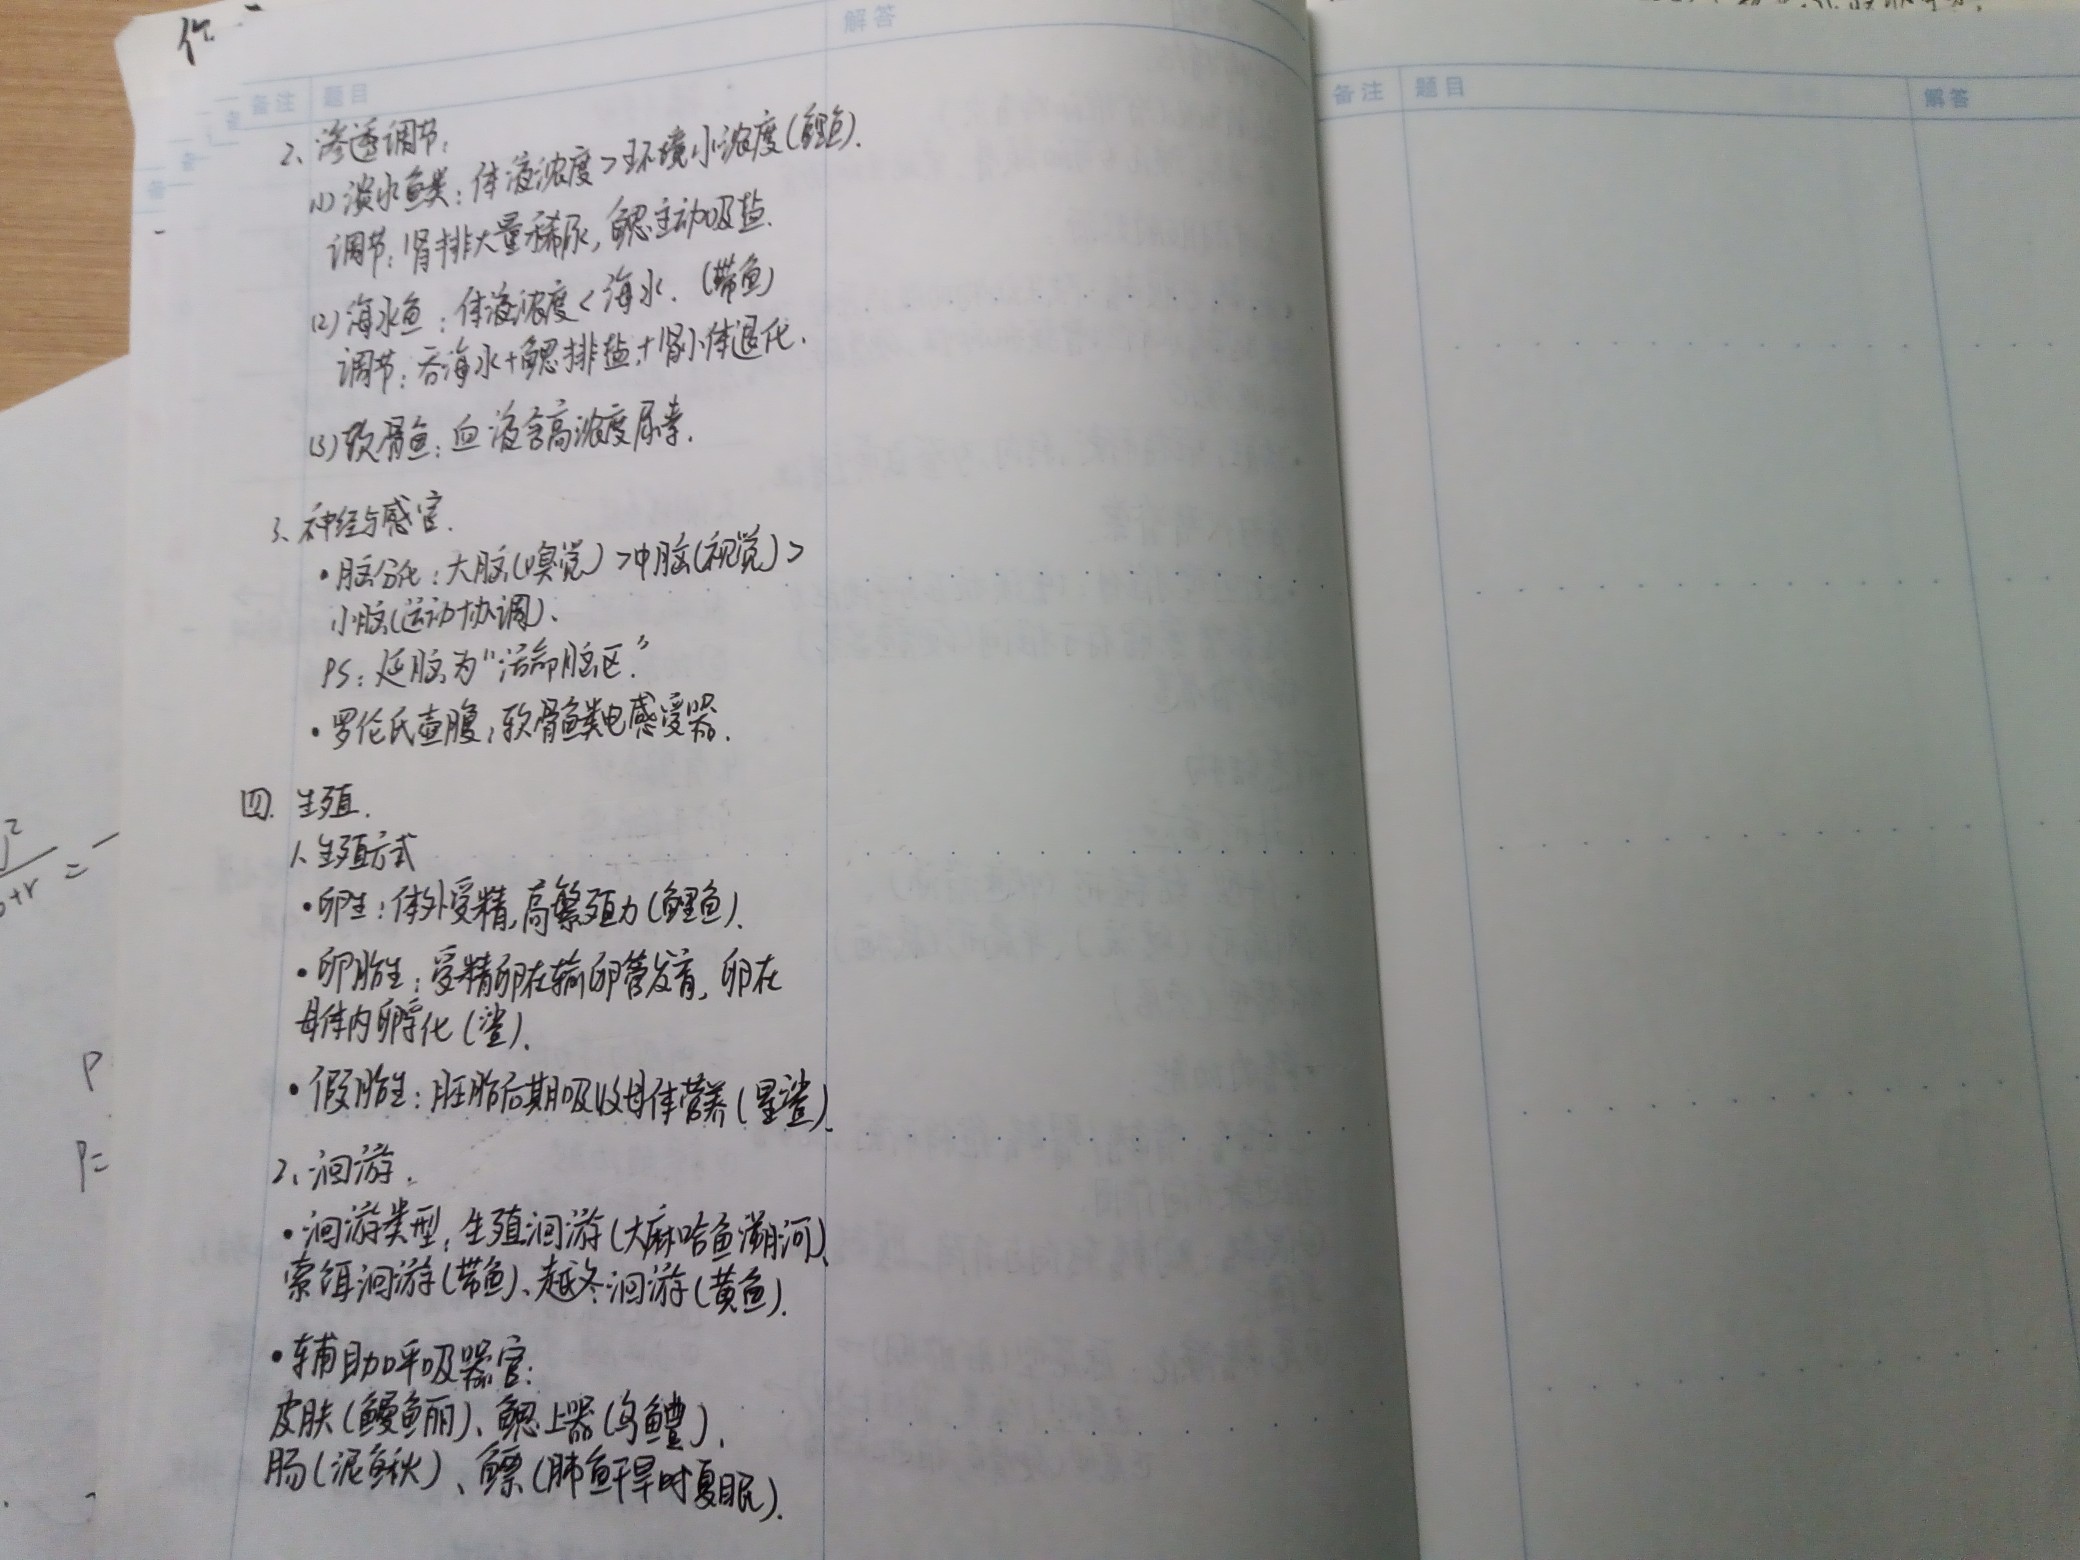 解答
备注 题目
2、渗透调节:
(1)淡水鱼类:体液浓度>环境小浓度(鲤鱼).
调节:肾排大量稀尿,鳃主动吸盐.
(2)海水鱼:体液浓度<海水.(带鱼)
调节:吞海水+鳃排盐+肾小体退化.
(3)软骨鱼:血液含高浓度尿素.
3、神经与感官.
•脑分化:大脑(嗅觉)>中脑(视觉)>
小脑(运动协调).
PS:延脑为"活命脑区."
•罗伦氏壶腹:软骨鱼类电感受器.
四.生殖.
1、生殖方式
•卵生:体外受精,高繁殖力(鲤鱼).
•卵胎生:受精卵在输卵管发育,卵在
母体内孵化(鲨).
•假胎生:胚胎后期吸收母体营养(星鲨).
2、洄游.
•洄游类型:生殖洄游(大麻哈鱼溯河)、
索饵洄游(带鱼)、越冬洄游(黄鱼).
•辅助呼吸器官:
皮肤(鳗鲡)、鳃上器(乌鳢)、
肠(泥鳅)、鳔(肺鱼干旱时夏眠).
备注 题目 解答
P
P=